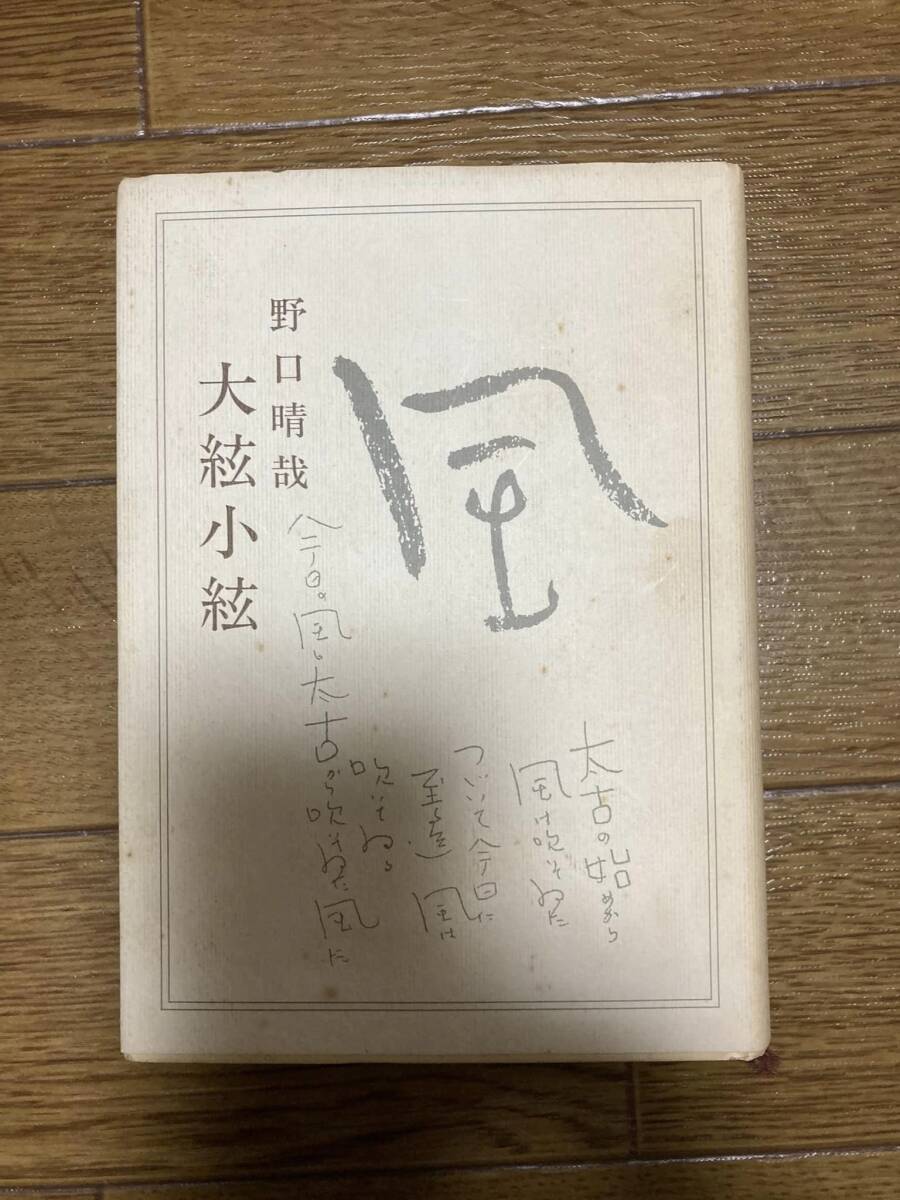 風
太古の始めから
風は吹いてゐた
つゞいて今日に
至る迄 風は
吹いてゐる
今日の風も太古から吹いてゐた風
野口晴哉
大絃小絃